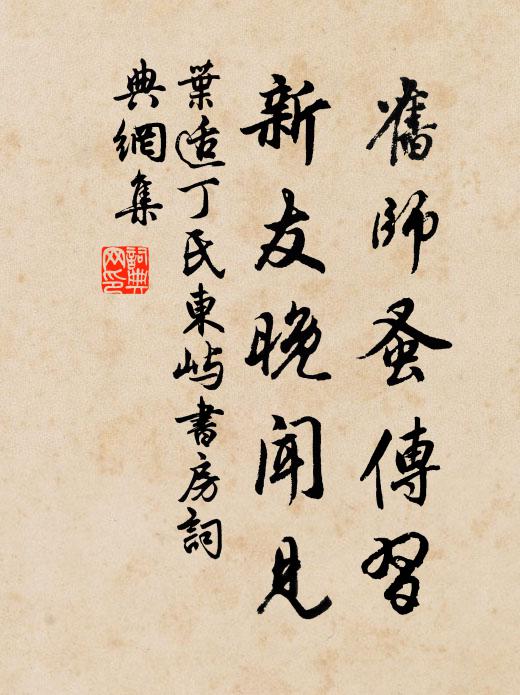 舊師蚤傳習
新友晚聞見
葉适丁氏東嶼書房詞
典網集
詞典
網印